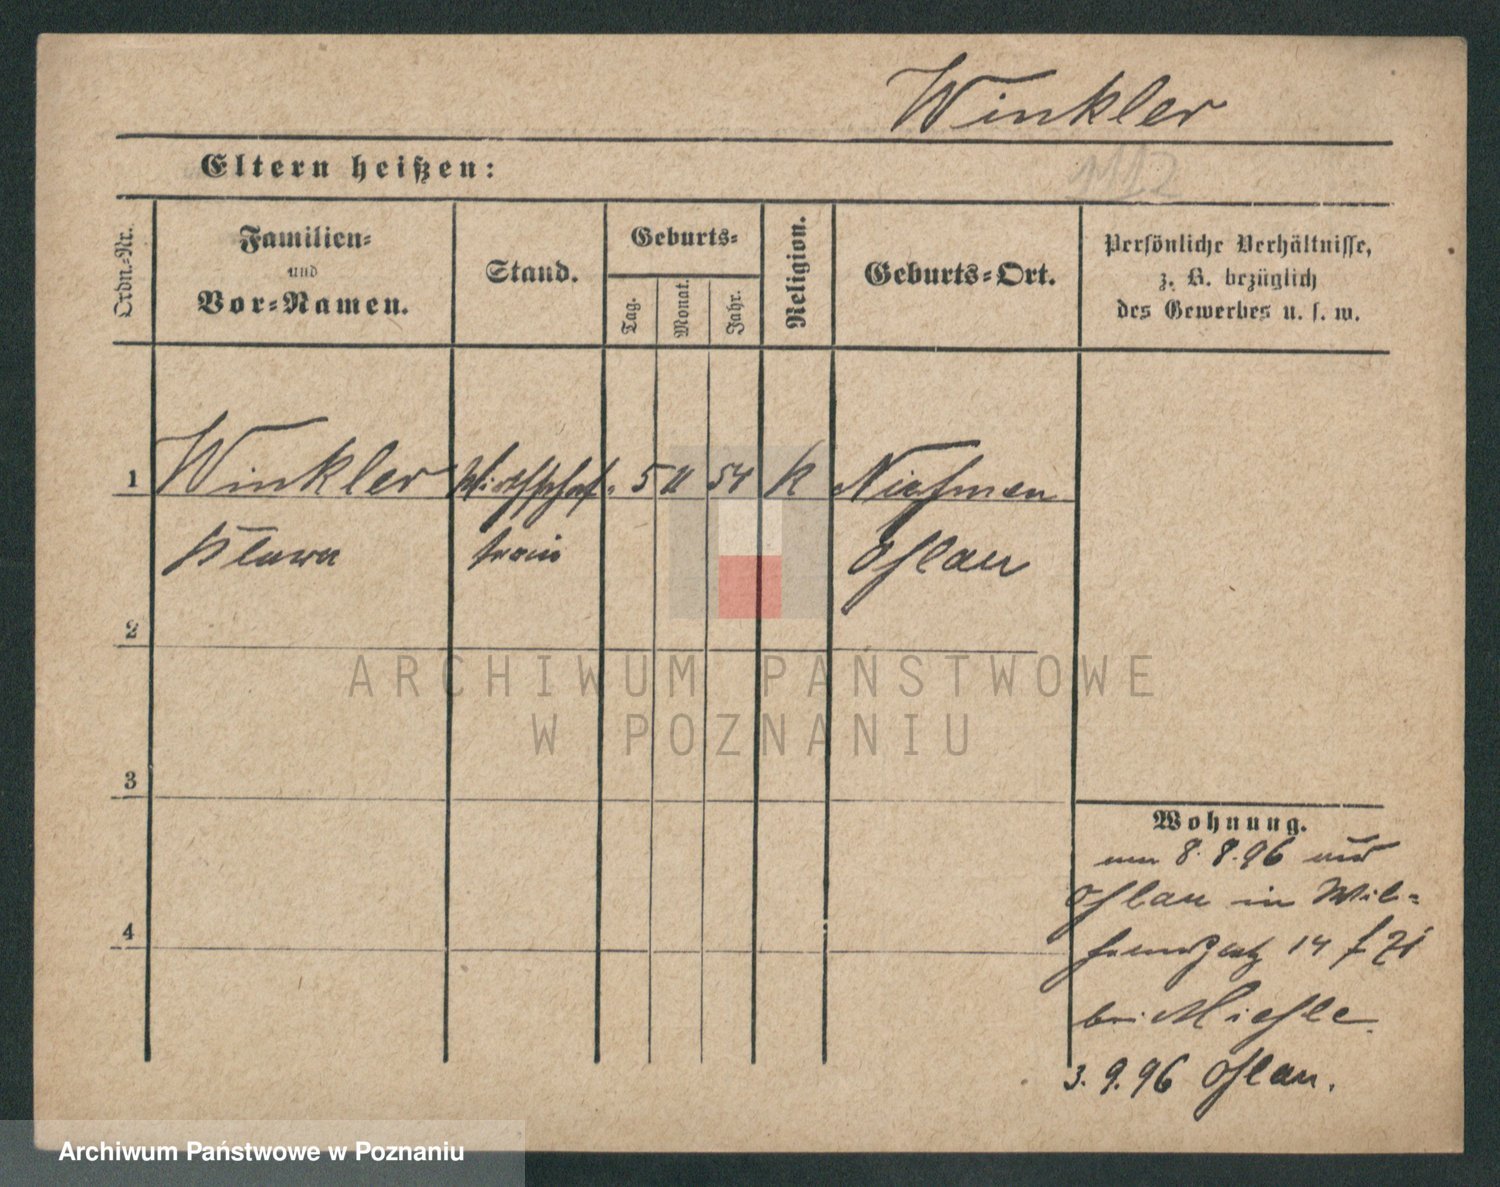 Winkler
Eltern heißen:
Ordn.-Nr.
Familien-
und
Vor-Namen.
Stand.
Geburts-
Tag.
Monat.
Jahr.
Religion.
Geburts-Ort.
Persönliche Verhältnisse,
z. B. bezüglich
des Gewerbes u. s. w.
1 Winkler Wirthschaf- 5 11 54 K
Klara
Ohlau
2
3
4
Wohnung.
8. 8. 96
Ohlau in Wil-
14
bei Miehle
3. 9. 96 Ohlau.
ARCHIWUM PAŃSTWOWE
W POZNANIU
Archiwum Państwowe w Poznaniu